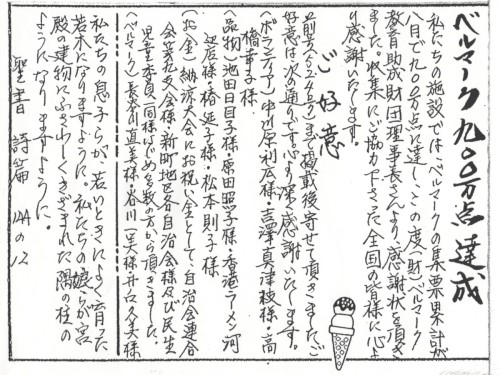 ベルマーク九〇〇万点達成
私たちの施設では、ベルマークの集票累計が
八日で九〇〇万点に達し、この度(財)ベルマーク
教育助成財団理事長さんより、感謝状を頂き
ました。収集にご協力下さった全国の皆様に心よ
り感謝いたします。
ご好意
前号(524号)まで掲載後寄せて頂きました、ご
好意は次の通りです。心より深く感謝いたします。
(ボランティア)中川原利広様・吉澤真津枝様・高
橋華子様
(品物)池田日自子様・原田照子様・香港ラーメン河
辺店様・椿延子様・松本則子様
(お金)納涼大会にお祝い金として、自治会連合
会筆北支会様・新町地区各自治会様及び民生
児童委員一同様はじめ多数の方から頂きました。
(ベルマーク)長谷川直美様・谷川 様・井口久美様
私たちの息子らが、若いときによく育った
若木になりますように。私たちの娘らが宮
殿の建物にふさわしくきざまれた隅の柱の
ようになりますように。
聖書 詩篇 144の12